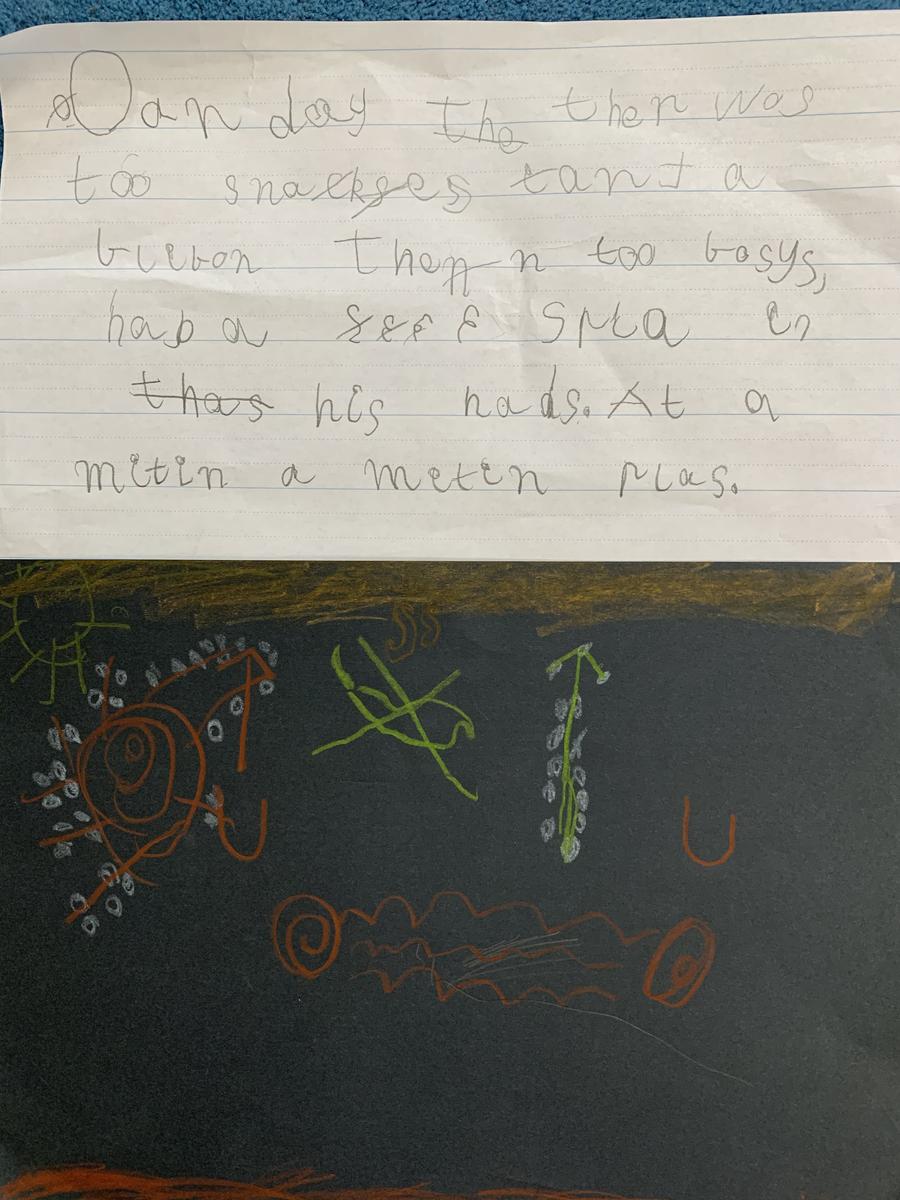 Oan day the then was
too snackses tant a
blebon then n too bosys,
hab a Spla in
thas his hads. At a
mitin a metin plas.